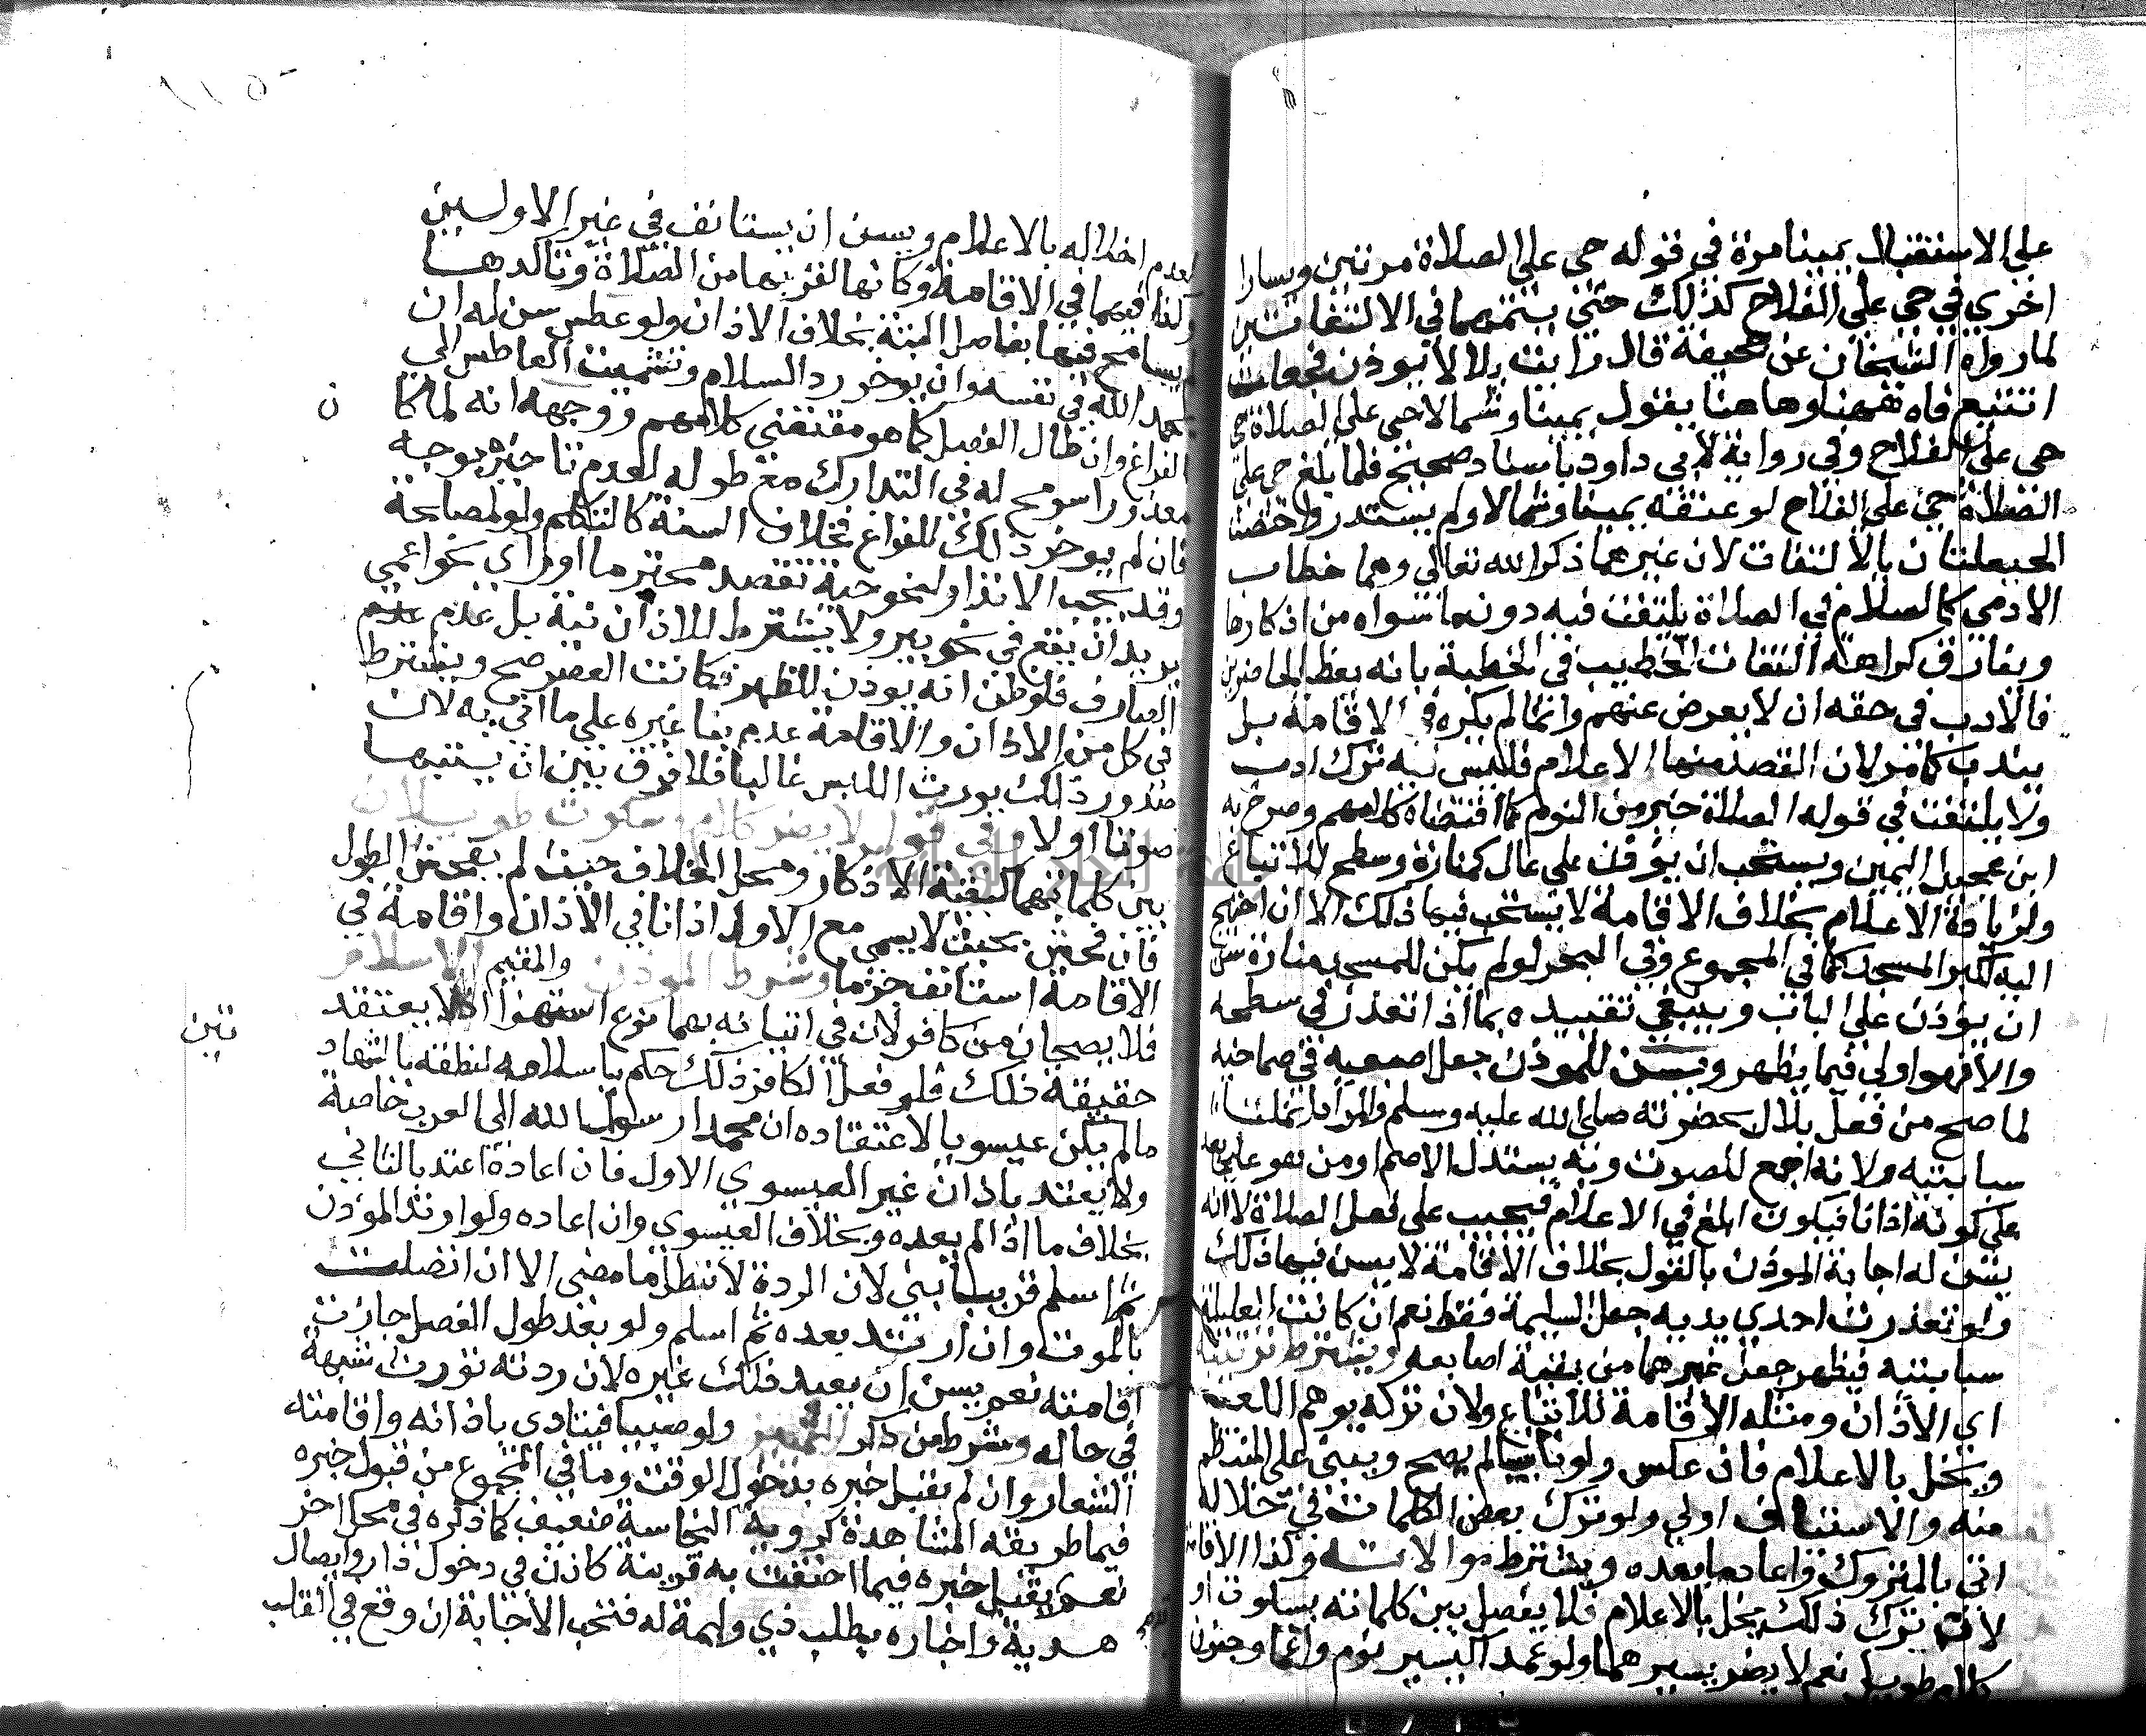 علي الاستقبال يمينا مرة في قوله حي علي الصلاة مرتين ويسارا
اخري في حي علي الفلاح كذلك حتي يتمهما في الالتفاتتين
لما رواه الشيخان عن جحيفة قال رايت بلالا يوذن فجعلت
اتتبع فاه ههنا وهاهنا يقول يمينا وشمالا حي علي الصلاة حي
حي علي الفلاح وفي رواية لابي داود باسناد صحيح فلما بلغ حي علي
الصلاة حي علي الفلاح لوي عنقه يمينا وشمالا ولم يستدر واختصت
الحيعلتان بالالتفات لان غيرهما ذكر الله تعالي وهما خطاب
الادمي كالسلام في الصلاة يلتفت فيه دون ما سواه من اذكارها
ويفارق كراهة التفات الخطيب في الخطبة بانه يعظ الحاضرين
فالادب في حقه ان لا يعرض عنهم وانما لم يكره في الاقامة بل
يندب كما مر لان القصد منها الاعلام فليس فيه ترك ادب
ولا يلتفت في قوله الصلاة خير من النوم كما اقتضاه كلامهم وصرح به
ابن عجيل اليمين ويستحب ان يؤذن علي عال كمنارة وسطح للاتباع
ولزيادة الاعلام بخلاف الاقامة لا يستحب فيها ذلك الا ان احتيج
اليه لكبر المسجد كما في المجموع وفي البحر لو لم يكن للمسجد منارة سن
ان يؤذن علي الباب وينبغي تقييده بما اذا تعذر في سطحه
والافهو اولي فيما يظهر ويسن للموذن جعل اصبعيه في صماخيه
لما صح من فعل بلال بحضرته صلي الله عليه وسلم والمراد انملتا
سبابتيه ولانه اجمع للصوت وبه يستدل الاصم او من هو علي بعد
علي كونه اذانا فيكون ابلغ في الاعلام فيجيب علي فعل الصلاة لا انه
يسن له اجابة الموذن بالقول بخلاف الاقامة لا يسن فيها ذلك
ولو تعذرت احدي يديه جعل السليمة فقط نعم ان كانت العليلة
سبابتيه فيظهر جعل غيرهما من بقية اصابعه ويشترط ترتيبه
اي الاذان ومثله الاقامة للاتباع ولان تركه يوهم اللعب
ويخل بالاعلام فان عكس ولو ناسيا لم يصح ويبني علي المنتظم
منه والاستئناف اولي ولو ترك بعض الكلمات في خلاله
اتي بالمتروك واعاد ما بعده ويشترط موالاته وكذا الاقامة
لان ترك ذلك يخل بالاعلام فلا يفصل بين كلماته بسكوت او
كلام طويل نعم لا يضر يسيرهما ولو عمدا كيسير نوم واغما وجنون
لعدم اخلاله بالاعلام ويسن ان يستانف في غير الاولين
وكذا فيهما في الاقامة وكانها لقربها من الصلاة وتاكدها
لم يسامح فيها بفاصل البتة بخلاف الاذان ولو عطس سن له ان
يحمد الله في نفسه وان يوخر رد السلام وتشميت العاطس الي
الفراغ وان طال الفصل كما هو مقتضي كلامهم ووجهه انه لما كا ن
معذورا سومح له في التدارك مع طوله لعدم تاخيره بوجه
فان لم يوخر ذلك للفراغ فخلاف السنة كالتكلم ولو لمصلحة
وقد يجب الانذار لنحو حية تقصد محترما او راي نحو اعمي
يريد ان يقع في نحو بير ولا يشترط للاذان نية بل عدم عدم
الصارف فلو ظن انه يوذن للظهر فكانت العصر صح ويشترط
في كل من الاذان والاقامة عدم بنا غيره علي ما اتي به لان
صدور ذلك يورث اللبس غالبا فلا فرق بين ان يشتبها
صوتا اولا وفي قول لا يضر كلام وسكوت طويلان
بين كلماتهما كبقية الاذكار ومحل الخلاف حيث لم يفحش الطول
فان فحش بحيث لا يسمي مع الاول اذانا في الاذان واقامة في
الاقامة استانف جزما وشرط الموذن والمقيم الاسلام
فلا يصحان من كافر لان في اتيانه بهما نوع استهزا اذ لا يعتقد
حقيقة ذلك فلو فعل الكافر ذلك حكم باسلامه لنطقه بالشهاد تين
ما لم يكن عيسويا لاعتقاده ان محمدا رسول الله الي العرب خاصة
ولا يعتد باذان غير العيسوي الاول فان اعادة اعتد بالثاني
بخلاف ما اذا لم يعده وبخلاف العيسوي وان اعاده ولو ارتد الموذن
ثم اسلم قريبا بني لان الردة لا تبطل ما مضي الا ان اتصلت
بالموت وان ارتد بعده ثم اسلم ولو بعد طول الفصل جازت
اقامته نعم يسن ان يعيد ذلك غيره لان ردته تورث شبهة
في حاله وشرط من ذكر التمييز ولو صبيا فيتادي باذانه واقامته
الشعار وان لم يقبل خبره بدخول الوقت وما في المجموع من قبول خبره
فيما طريقه المشاهدة كروية النجاسة ضعيف كما ذكره في محل اخر
نعم يقبل خبره فيما احتفت به قرينة كاذن في دخول دار وايصال
هدية واخباره بطلب ذي وليمة له فتجب الاجابة ان وقع في القلب